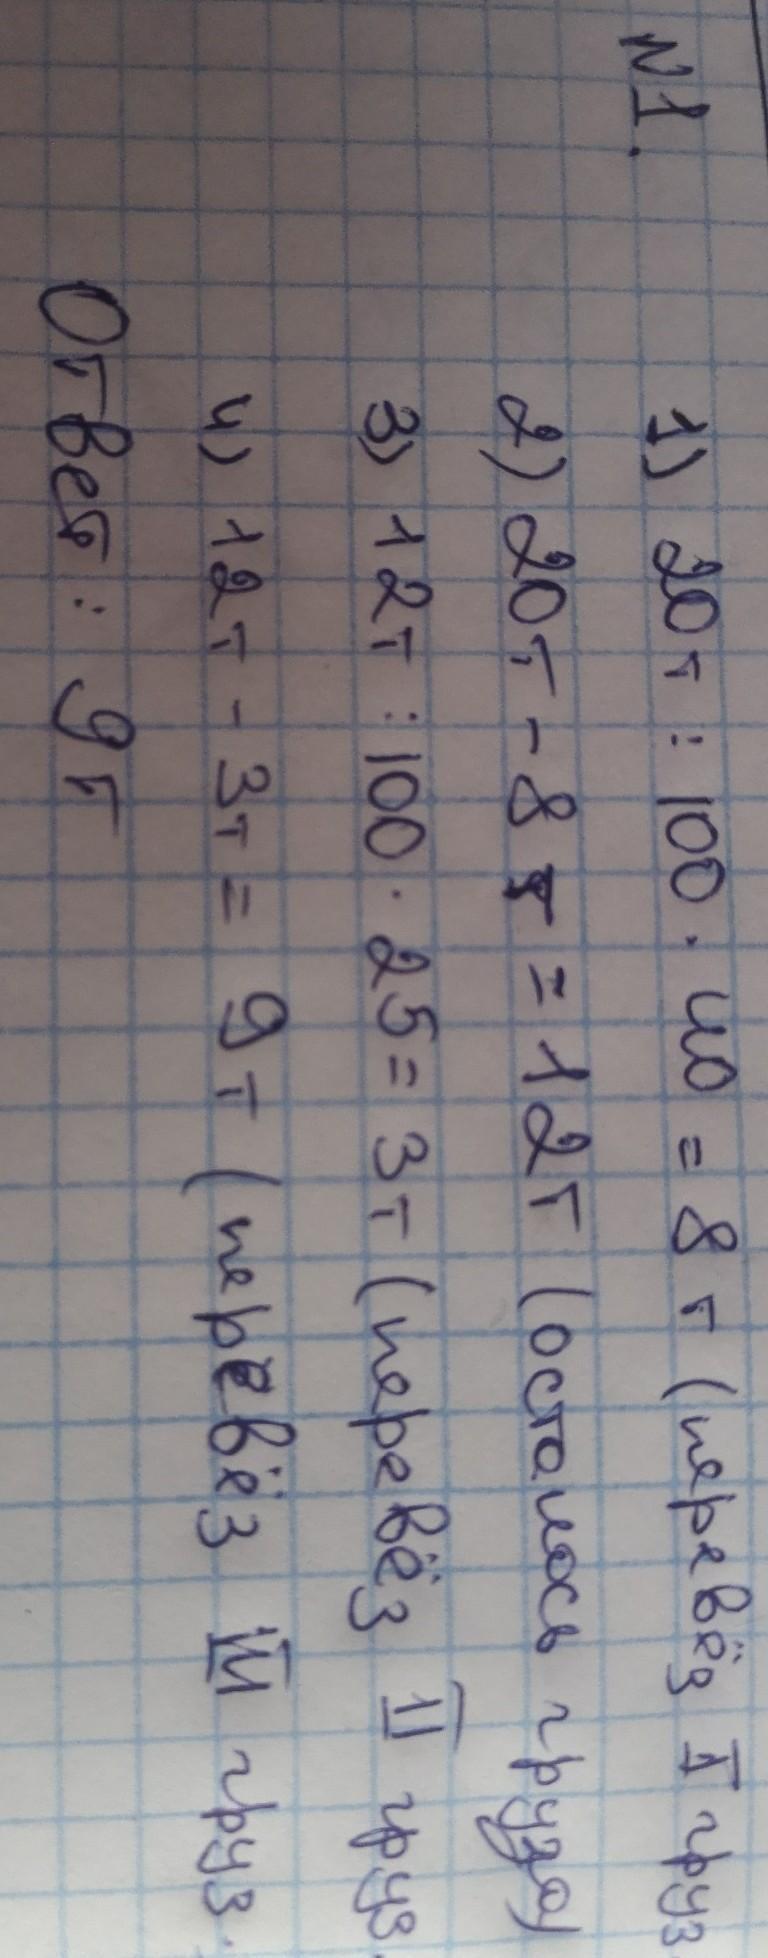 №1.
1) 20т : 100 · 40 = 8т (перевёз I груз
2) 20т - 8т = 12т (осталось груза)
3) 12т : 100 · 25 = 3т (перевёз II груз.
4) 12т - 3т = 9т (перевёз III груз.
Ответ: 9т